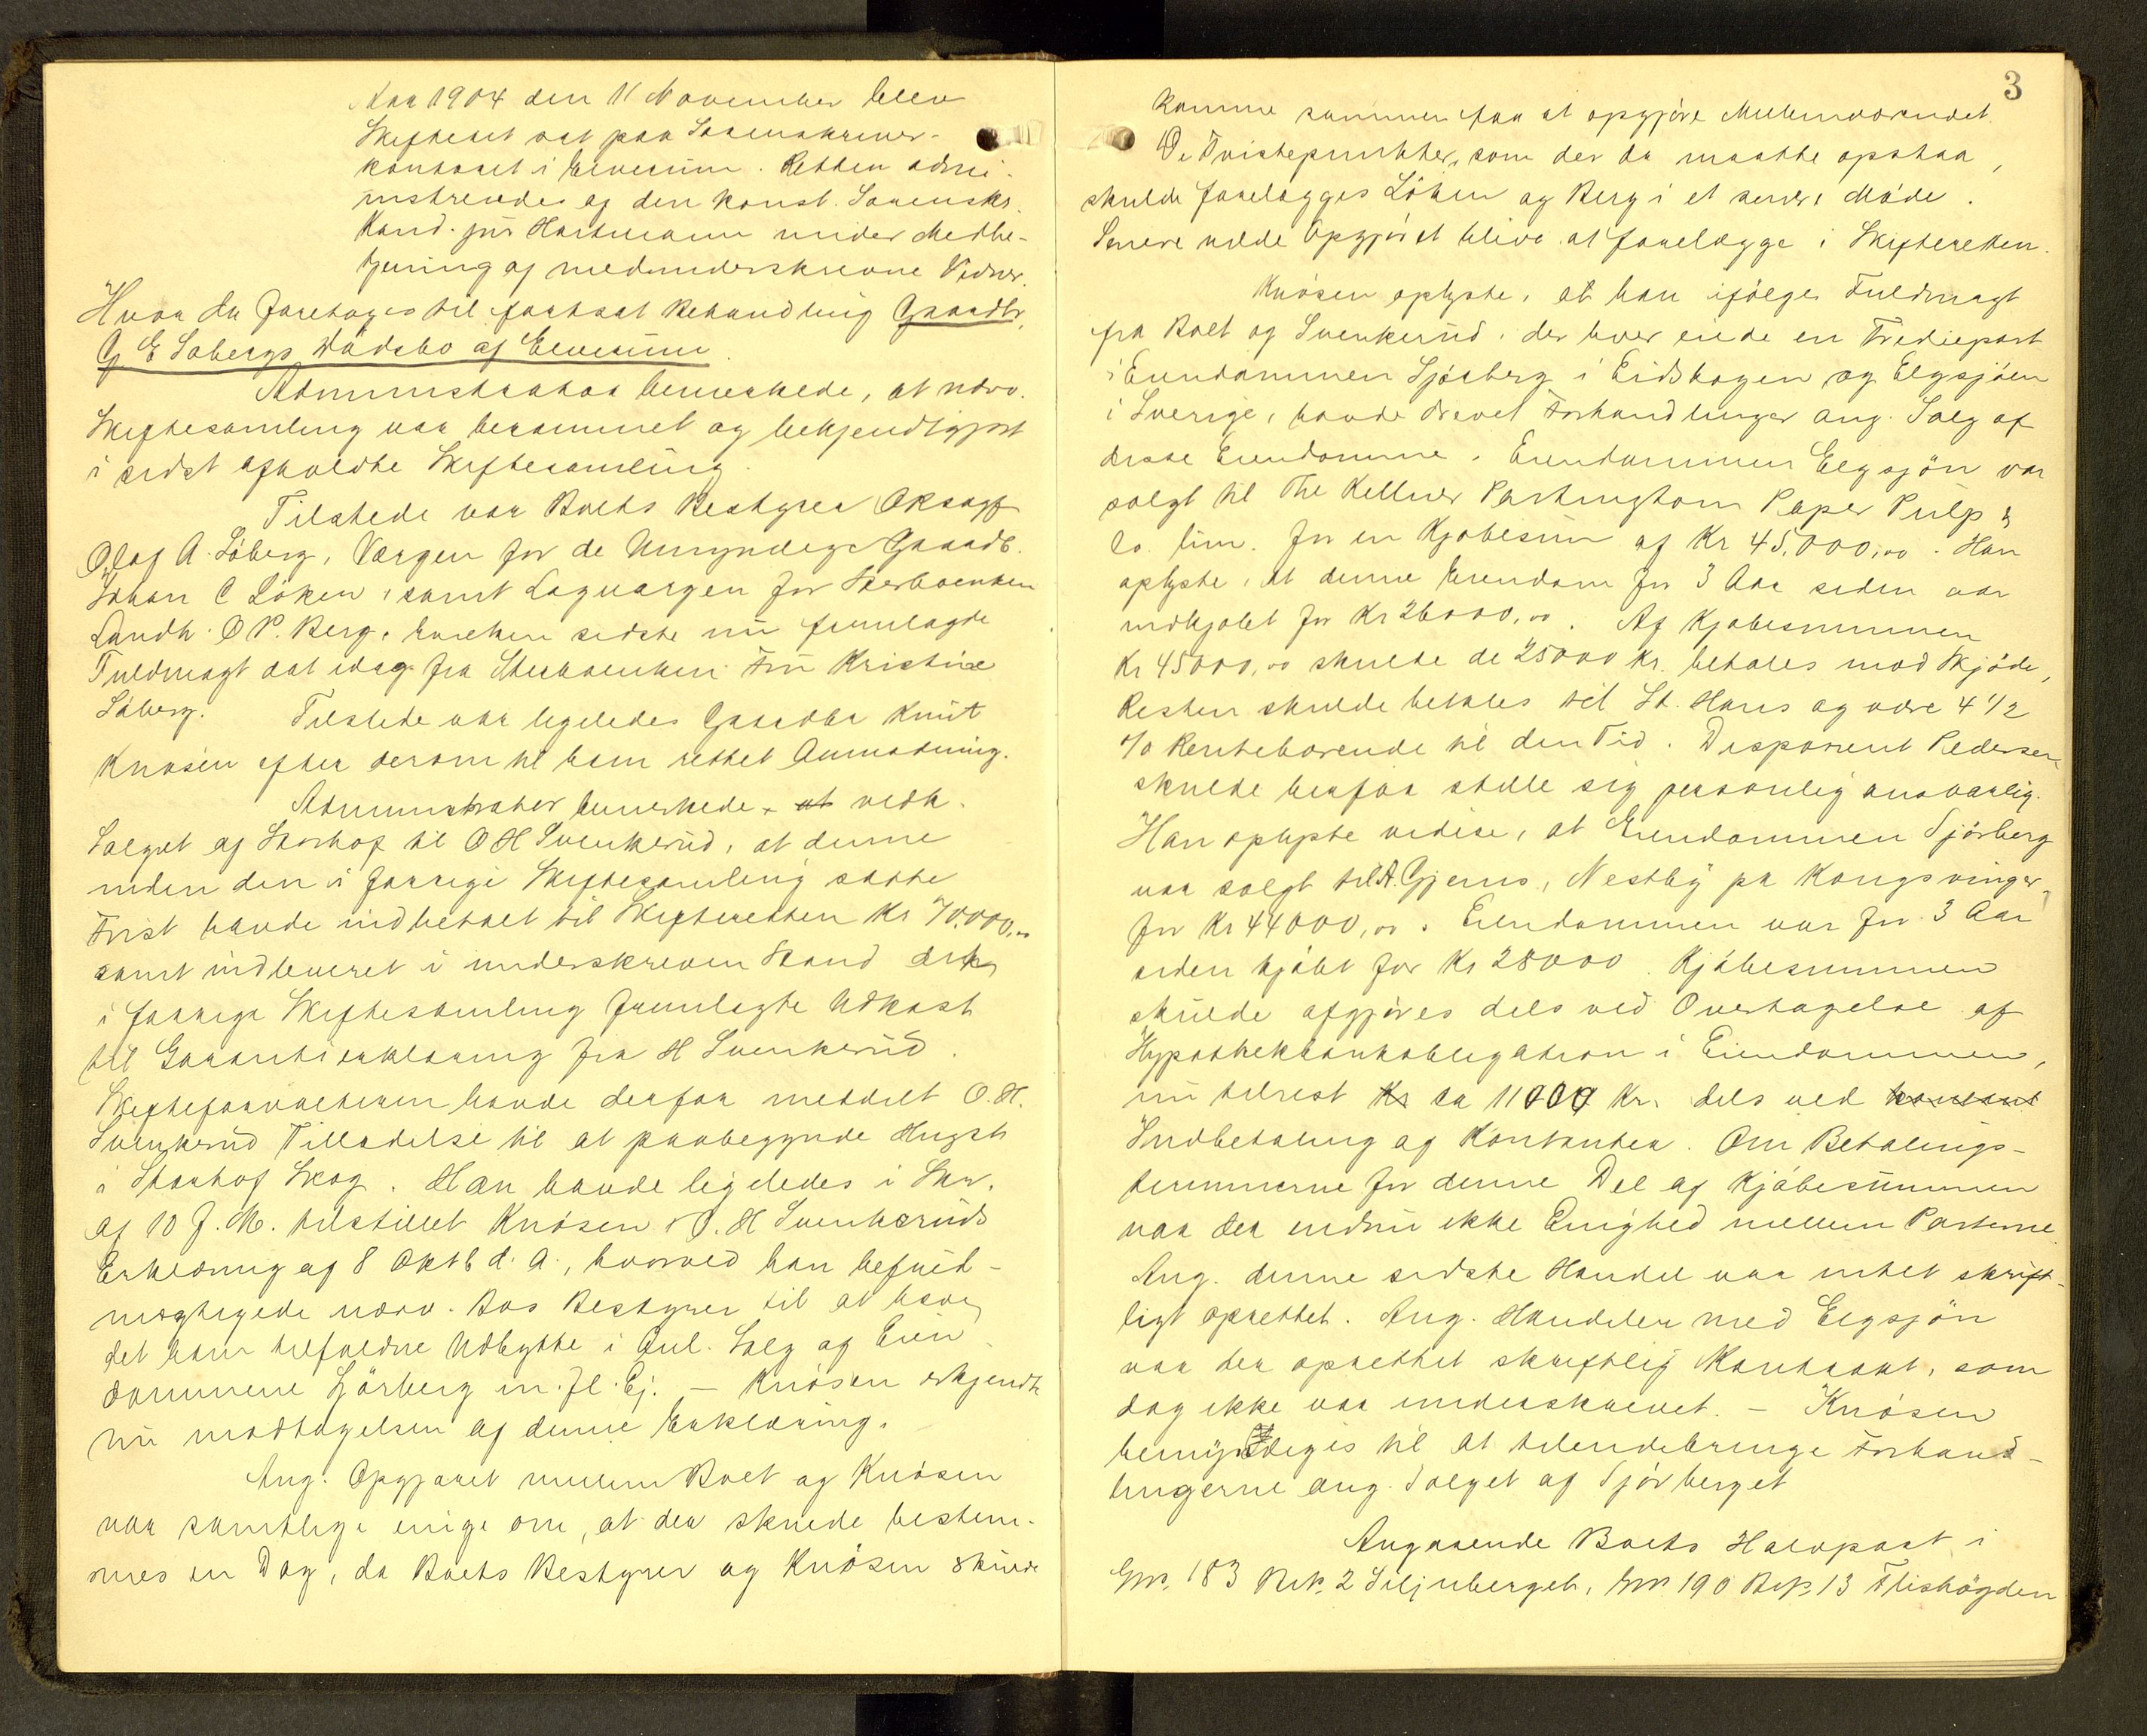 Aar 1904 den 11 November blev
Skifteret sat paa Sorenskriver-
kontoret i Elverum. Retten admi-
nistreredes af den konst. Sorenskr.
Kand. jur Hartmann under Medbe-
tjening af medunderskrevne Vidner.
Hvor da foretoges til fortsat Behandling Gaardbr.
G E Söbergs Dödsbo af Elverum.
Administrator bemerkede, at nærv.
Skiftesamling var berammet og bekjendtgjort
i sidst afholdte Skiftesamling.
Tilstede var Boets Bestyrer Oksagf
Olaf A. Söberg, Værgen for de Umyndige Gaardb.
Johan C Löken, samt Lagværgen for Sterboenken
Landh. O P. Berg, hvilken sidste nu fremlagde
Fuldmagt dat idag fra Sterboenken Fru Kristine
Söberg. Tilstede var ligeledes Gaardbr Knut
Knösen efter derom til ham rettet Anmodning.
Administrator bemerkede, at vedk.
Salget af Storhof til O H Svenkerud, at denne
inden den i forrige Skiftesamling satte
Frist havde indbetalt til Skifteretten Kr 70.000,00
samt indleveret i underskreven Stand det
i forrige Skiftesamling fremlagte Udkast
til Garantierklæring fra H Svenkerud.
Skifteforvalteren havde derfor meddelt O. H.
Svenkerud Tilladelse til at paabegynde Hugst
i Storhof Skog. Han havde ligeledes i Skr.
af 10 f. M. tilstillet Knösen O. H Svenkeruds
Erklæring af 8 Oktb d. A., hvorved han befuld-
mægtigede nærv. Bos Bestyrer til at hæve
det ham tilfaldne Udbytte i Anl. Salg af Eien-
dommene Sjöberg m. fl. Ej. – Knösen erkjendte
nu modtagelsen af denne Erklæring.
Ang. Opgjøret mellem Boet og Knösen
var samtlige enige om, at der skulde bestem-
mes en Dag, da Boets Bestyrer og Knösen skulde
3
komme sammen for at opgjøre Mellemværendet.
De Tvistepunkter, som der da maatte opstaa,
skulde forelægges Löken og Berg i et senere Møde.
Senere vilde Opgjøret blive at forelægge i Skifteretten.
Knösen oplyste, at han ifølge Fuldmagt
fra Boet og Svenkerud, der hver eiede en Trediepart
i Eiendommen Sjöberg i Eidskogen og Elgsjöen
i Sverige, havde drevet Forhandlinger ang. Salg af
disse Eiendomme. Eiendommen Elgsjön var
solgt til The Kellner Partington Paper Pulp &
Co. lim. for en Kjøbesum af Kr 45.000,00. Han
oplyste, at denne Eiendom for 3 Aar siden var
indkjøbt for Kr 26000,00. Af Kjøbesummen
Kr 45000,00 skulde de 25000 Kr. betales mod Skjøde,
Resten skulde betales til St. Hans og være 4 1/2
% Rentebærende til den Tid. Disponent Pedersen
skulde herfor stille sig personlig ansvarlig.
Han oplyste videre, at Eiendommen Sjörberg
var solgt til A. Gjems, Nestby pr Kongsvinger
for Kr 44000,00. Eiendommen var for 3 Aar
siden kjøbt for Kr 28000. Kjøbesummen
skulde afgjøres dels ved Overtagelse af
Hypothekbankobligation i Eiendommen,
nu tilrest Kr ca 11000 Kr. dels ved kontant
Indbetaling af Kontanter. Om Betalings-
terminerne for denne Del af Kjøbesummen
var der endnu ikke Enighed mellem Parterne.
Ang. denne sidste Handel var intet skrift-
ligt oprettet. Ang. Handelen med Elgsjön
var der oprettet skriftlig Kontrakt, som
dog ikke var underskrevet. – Knösen
bemyndiges til at tilendebringe Forhand-
lingerne ang. Salget af Sjörberget
Angaaende Boets Halvpart i
Gnr. 183 Brk. 2 Siljuberget, Gnr. 190 Brk. 13 Flishögden